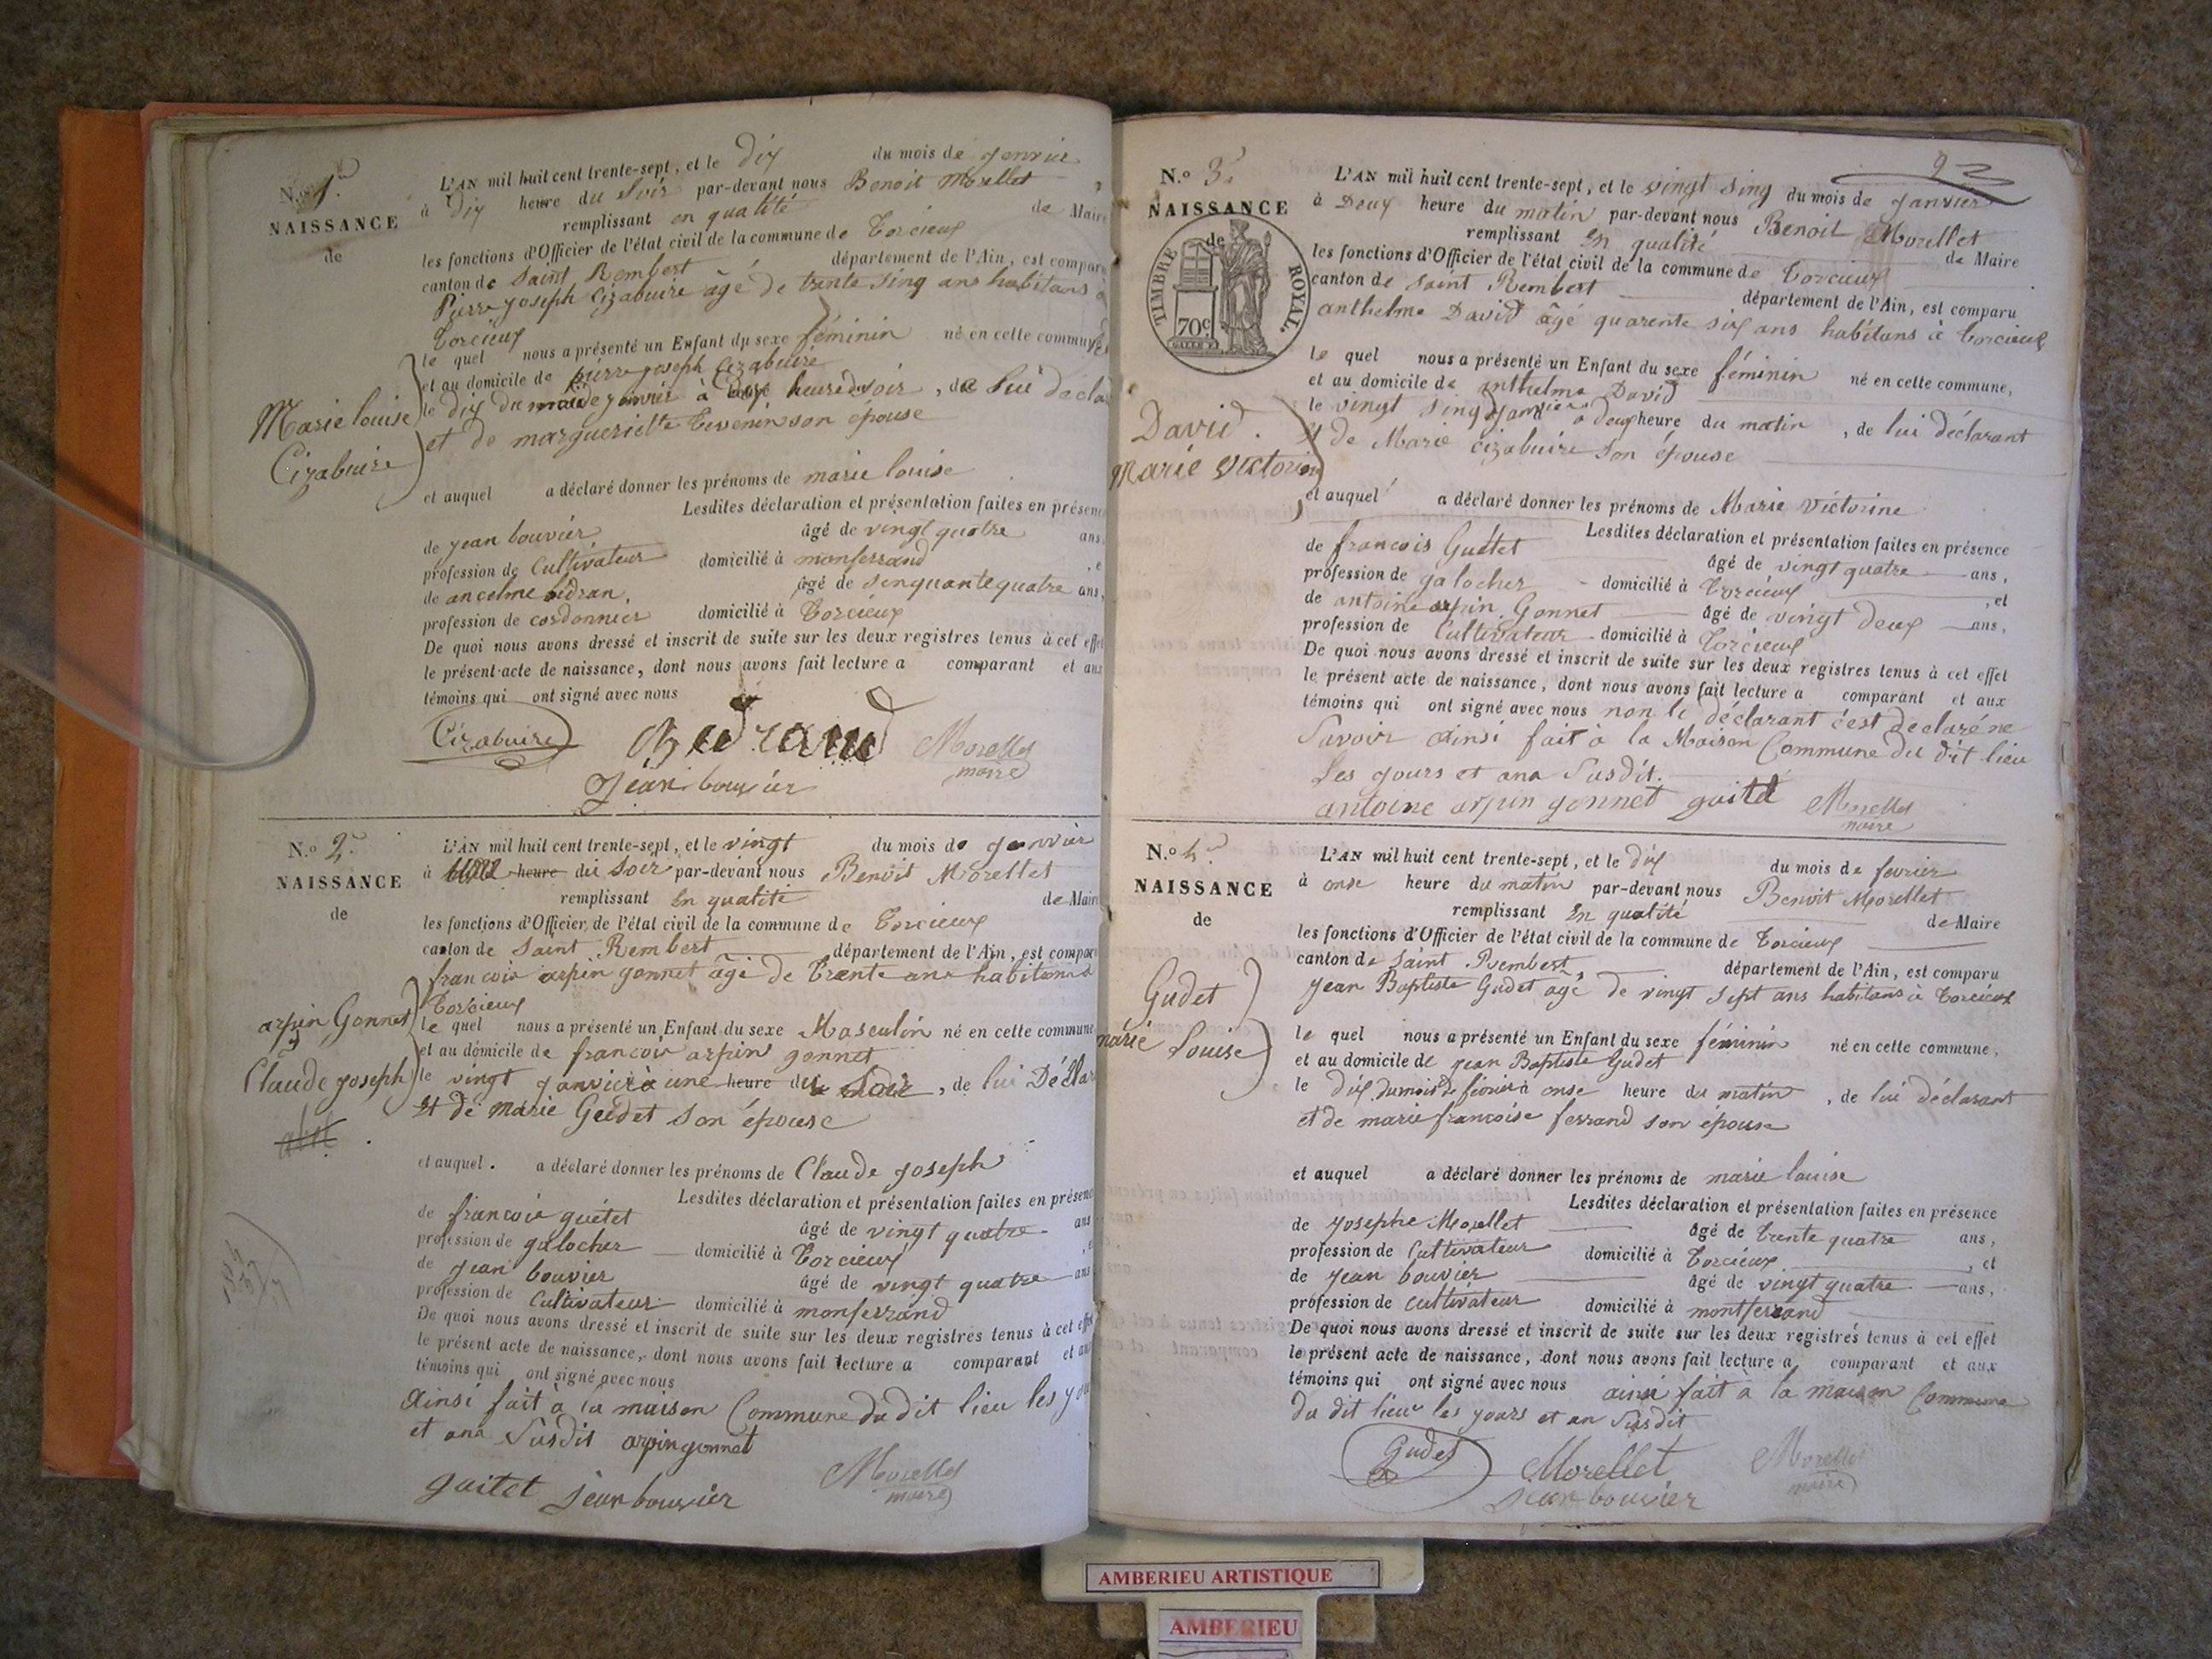 N.º 1.er
NAISSANCE
de
Marie louise
Cizabuire
L'AN mil huit cent trente-sept, et le Dix du mois de Janvier
à Dix heure du Soir par-devant nous Benoit Morellet
remplissant en qualité de Maire
les fonctions d'Officier de l'état civil de la commune de Torcieux
canton de Saint Rembert département de l'Ain, est comparu
Pierre joseph Cizabuire âgé de trente sing ans habitans à
Torcieux
le quel nous a présenté un Enfant du sexe féminin né en cette commune
et au domicile de pierre joseph Cizabuire
le dix du mois de janvier à heure du soir, de lui décla
et de margueriette tevenin son épouse
et auquel a déclaré donner les prénoms de marie louise
Lesdites déclaration et présentation faites en présence
de jean bouvier âgé de vingt quatre ans,
profession de Cultivateur domicilié à monferrand
de ancelme bedran, âgé de sinquante quatre ans,
profession de cordonnier domicilié à Torcieux
De quoi nous avons dressé et inscrit de suite sur les deux registres tenus à cet effet
le présent acte de naissance, dont nous avons fait lecture a comparant et aux
témoins qui ont signé avec nous
Cizabuire Bedrand Morellet
maire
Jean bouvier
N.º 2.e
NAISSANCE
de
arpin Gonnet
Claude joseph
L'AN mil huit cent trente-sept, et le vingt du mois de janvier
à une heure du Soir par-devant nous Benoit Morellet
remplissant En qualité de Maire
les fonctions d'Officier de l'état civil de la commune de Torcieux
canton de Saint Rembert département de l'Ain, est comparu
francois arpin gonnet âgé de trente ans habitans à
Torcieux
le quel nous a présenté un Enfant du sexe Masculin né en cette commune
et au domicile de francois arpin gonnet
le vingt janvier à une heure du Soir, de lui Déclar
Et de Marie Gudet son épouse
et auquel. a déclaré donner les prénoms de Claude joseph
Lesdites déclaration et présentation faites en présence
de francois guétet âgé de vingt quatre ans
profession de galocher domicilié à Torcieux
de jean bouvier âgé de vingt quatre ans
profession de Cultivateur domicilié à monferrand
De quoi nous avons dressé et inscrit de suite sur les deux registres tenus à cet effet
le présent acte de naissance, dont nous avons fait lecture a comparant et aux
témoins qui ont signé avec nous
ainsi fait à la maison Commune du dit lieu les jou
et ans Susdit arpin gonnet
guitet Jean bouvier Morellet
maire
N.º 3.e
NAISSANCE
de
TIMBRE ROYAL.
70c
David.
Marie Victorine
L'AN mil huit cent trente-sept, et le vingt sing du mois de janvier
à Deux heure du matin par-devant nous Benoit Morellet
remplissant En qualité de Maire
les fonctions d'Officier de l'état civil de la commune de Torcieux
canton de Saint Rembert département de l'Ain, est comparu
anthelme David âge quarente six ans habitans à Torcieux
le quel nous a présenté un Enfant du sexe féminin né en cette commune,
et au domicile de anthelme David
le vingt sing janvier à deux heure du matin, de lui déclarant
Et de Marie Cizabuire Son épouse
et auquel a déclaré donner les prénoms de Marie Victorine
Lesdites déclaration et présentation faites en présence
de francois Guétet âgé de vingt quatre ans,
profession de galocher domicilié à Torcieux, et
de antoine arpin Gonnet âgé de vingt deux ans,
profession de Cultivateur domicilié à Torcieux
De quoi nous avons dressé et inscrit de suite sur les deux registres tenus à cet effet
le présent acte de naissance, dont nous avons fait lecture a comparant et aux
témoins qui ont signé avec nous non le déclarant c'est declaré ne
Savoir ainsi fait à la Maison Commune du dit lieu
Les jours et ans Susdit.
antoine arpin gonnet guitet Morellet
maire
N.º 4.e
NAISSANCE
de
Gudet
marie Louise
L'AN mil huit cent trente-sept, et le dix du mois de fevrier
à onse heure du matin par-devant nous Benoit Morellet
remplissant En qualité de Maire
les fonctions d'Officier de l'état civil de la commune de Torcieux
canton de Saint Rembert, département de l'Ain, est comparu
Jean Baptiste Gudet âgé de vingt sept ans habitans à Torcieux
le quel nous a présenté un Enfant du sexe féminin né en cette commune,
et au domicile de jean Baptiste Gudet
le dix du mois de fevrier à onse heure du matin, de lui déclarant
et de marie francoise ferrand son épouse
et auquel a déclaré donner les prénoms de marie louise
Lesdites déclaration et présentation faites en présence
de Josephe Morellet âgé de trente quatre ans,
profession de Cultivateur domicilié à Torcieux, et
de jean bouvier âgé de vingt quatre ans,
profession de cultivateur domicilié à montferrand
De quoi nous avons dressé et inscrit de suite sur les deux registres tenus à cet effet
le présent acte de naissance, dont nous avons fait lecture a comparant et aux
témoins qui ont signé avec nous ainsi fait à la maison Commune
du dit lieu les jours et an Susdit
Gudet Morellet Morellet
maire
Jean bouvier
AMBERIEU ARTISTIQUE
AMBERIEU